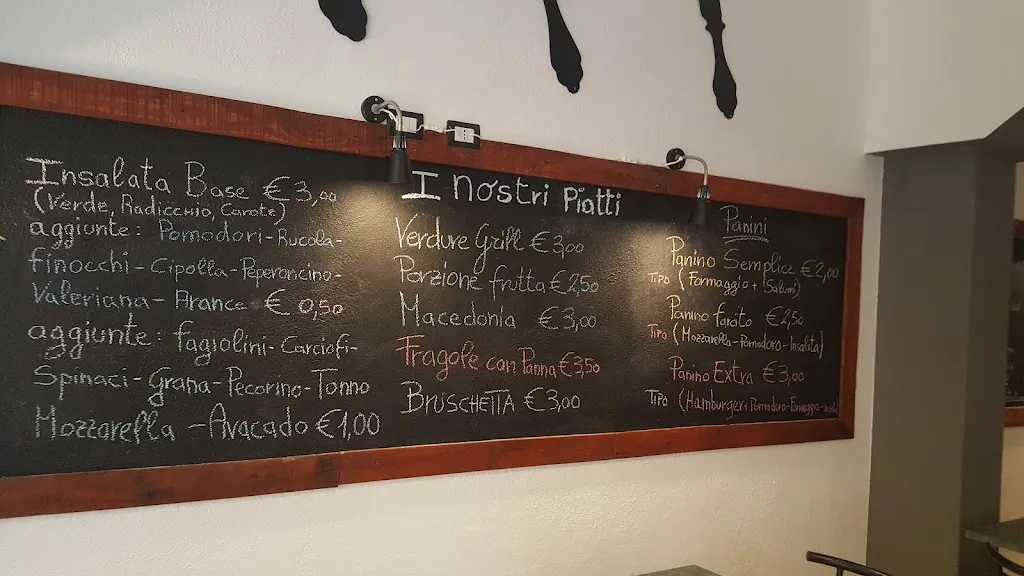 Insalata Base € 3,00
(Verde, Radicchio, Carote)
aggiunte: Pomodori-Rucola-
finocchi-Cipolla-Peperoncino-
Valeriana-Arance € 0,50
aggiunte: fagiolini-Carciofi-
Spinaci-Grana-Pecorino-Tonno
Mozzarella -Avacado €1,00
I nostri Piatti
Verdure Grill €3,00
Porzione frutta €2,50
Macedonia €3,00
Fragole con Panna €3,50
BRUSCHETTA €3,00
Panini
Panino Semplice €2,00
TIPO (Formaggio + Salumi)
Panino farcito €2,50
TIPO (Mozzarella-Pomodoro-Insalata)
Panino Extra €3,00
TIPO (Hamburger+Pomodoro-Formaggio-